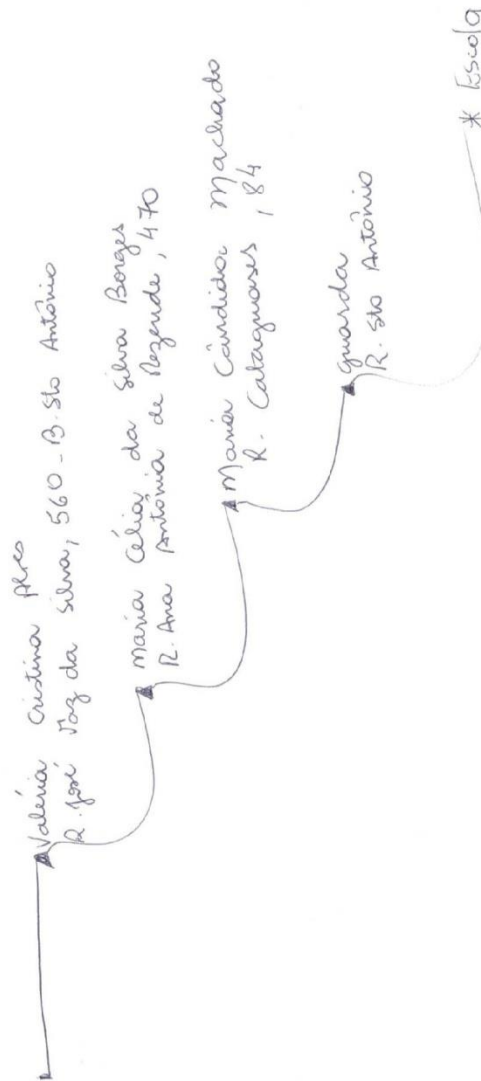 Valéria Cristina Alves
R. José Vaz da Silva, 560 - B. Sto Antônio
Maria Célia da Silva Borges
R. Ana Antônia de Rezende, 470
Maria Cândida Machado
R. Cataguases, 84
guarda
R. Sto Antônio
* Escola